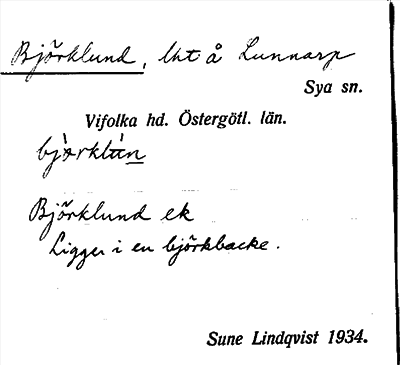 Björklund, lht å Lunnarp
Sya sn.
Vifolka hd. Östergötl. län.
bjö̀rklùn
Björklund ek
Ligger i en björkbacke.
Sune Lindqvist 1934.